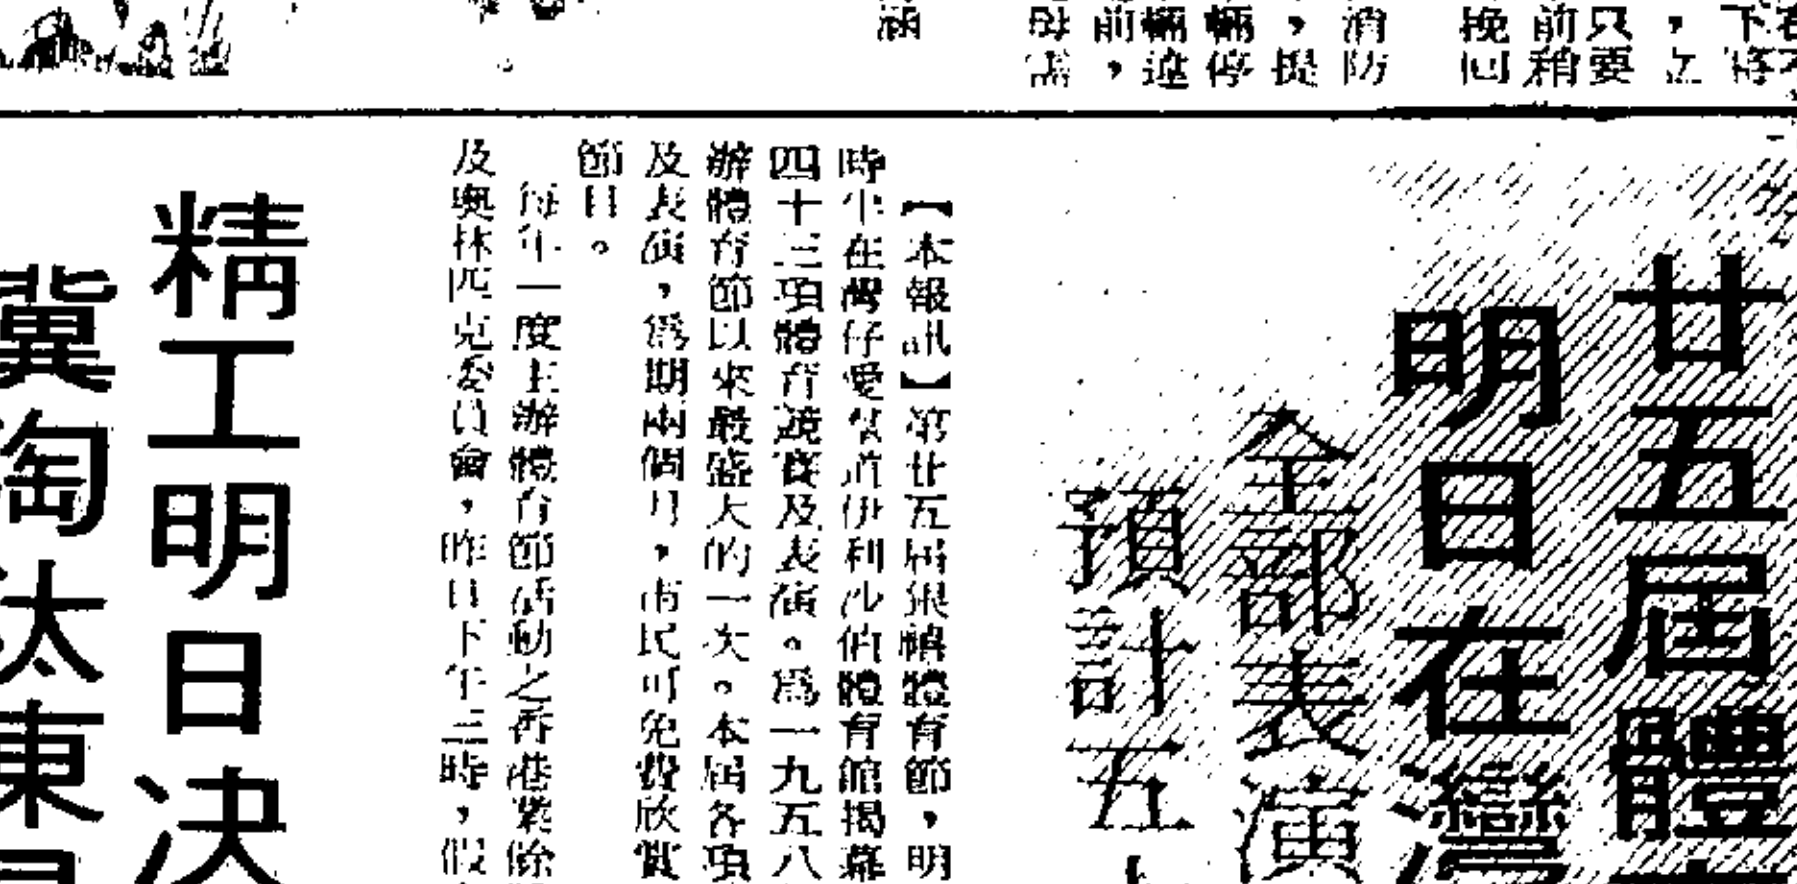 下將
，立
只要
前稍
挽回
消防
，提
輛停
輛違
前，
涵
廿五屆體
明日在灣
全部表演
預計五
【本報訊】第廿五屆銀禧體育節，明
時半在灣仔愛羣道伊利沙伯體育館揭幕
四十三項體育競賽及表演。爲一九五八
辦體育節以來最盛大的一次。本屆各項
及表演，爲期兩個月，市民可免費欣賞
節目。
每年一度主辦體育節活動之香港業餘
及奧林匹克委員會，昨日下午三時，假
精工明日决
冀淘汰東